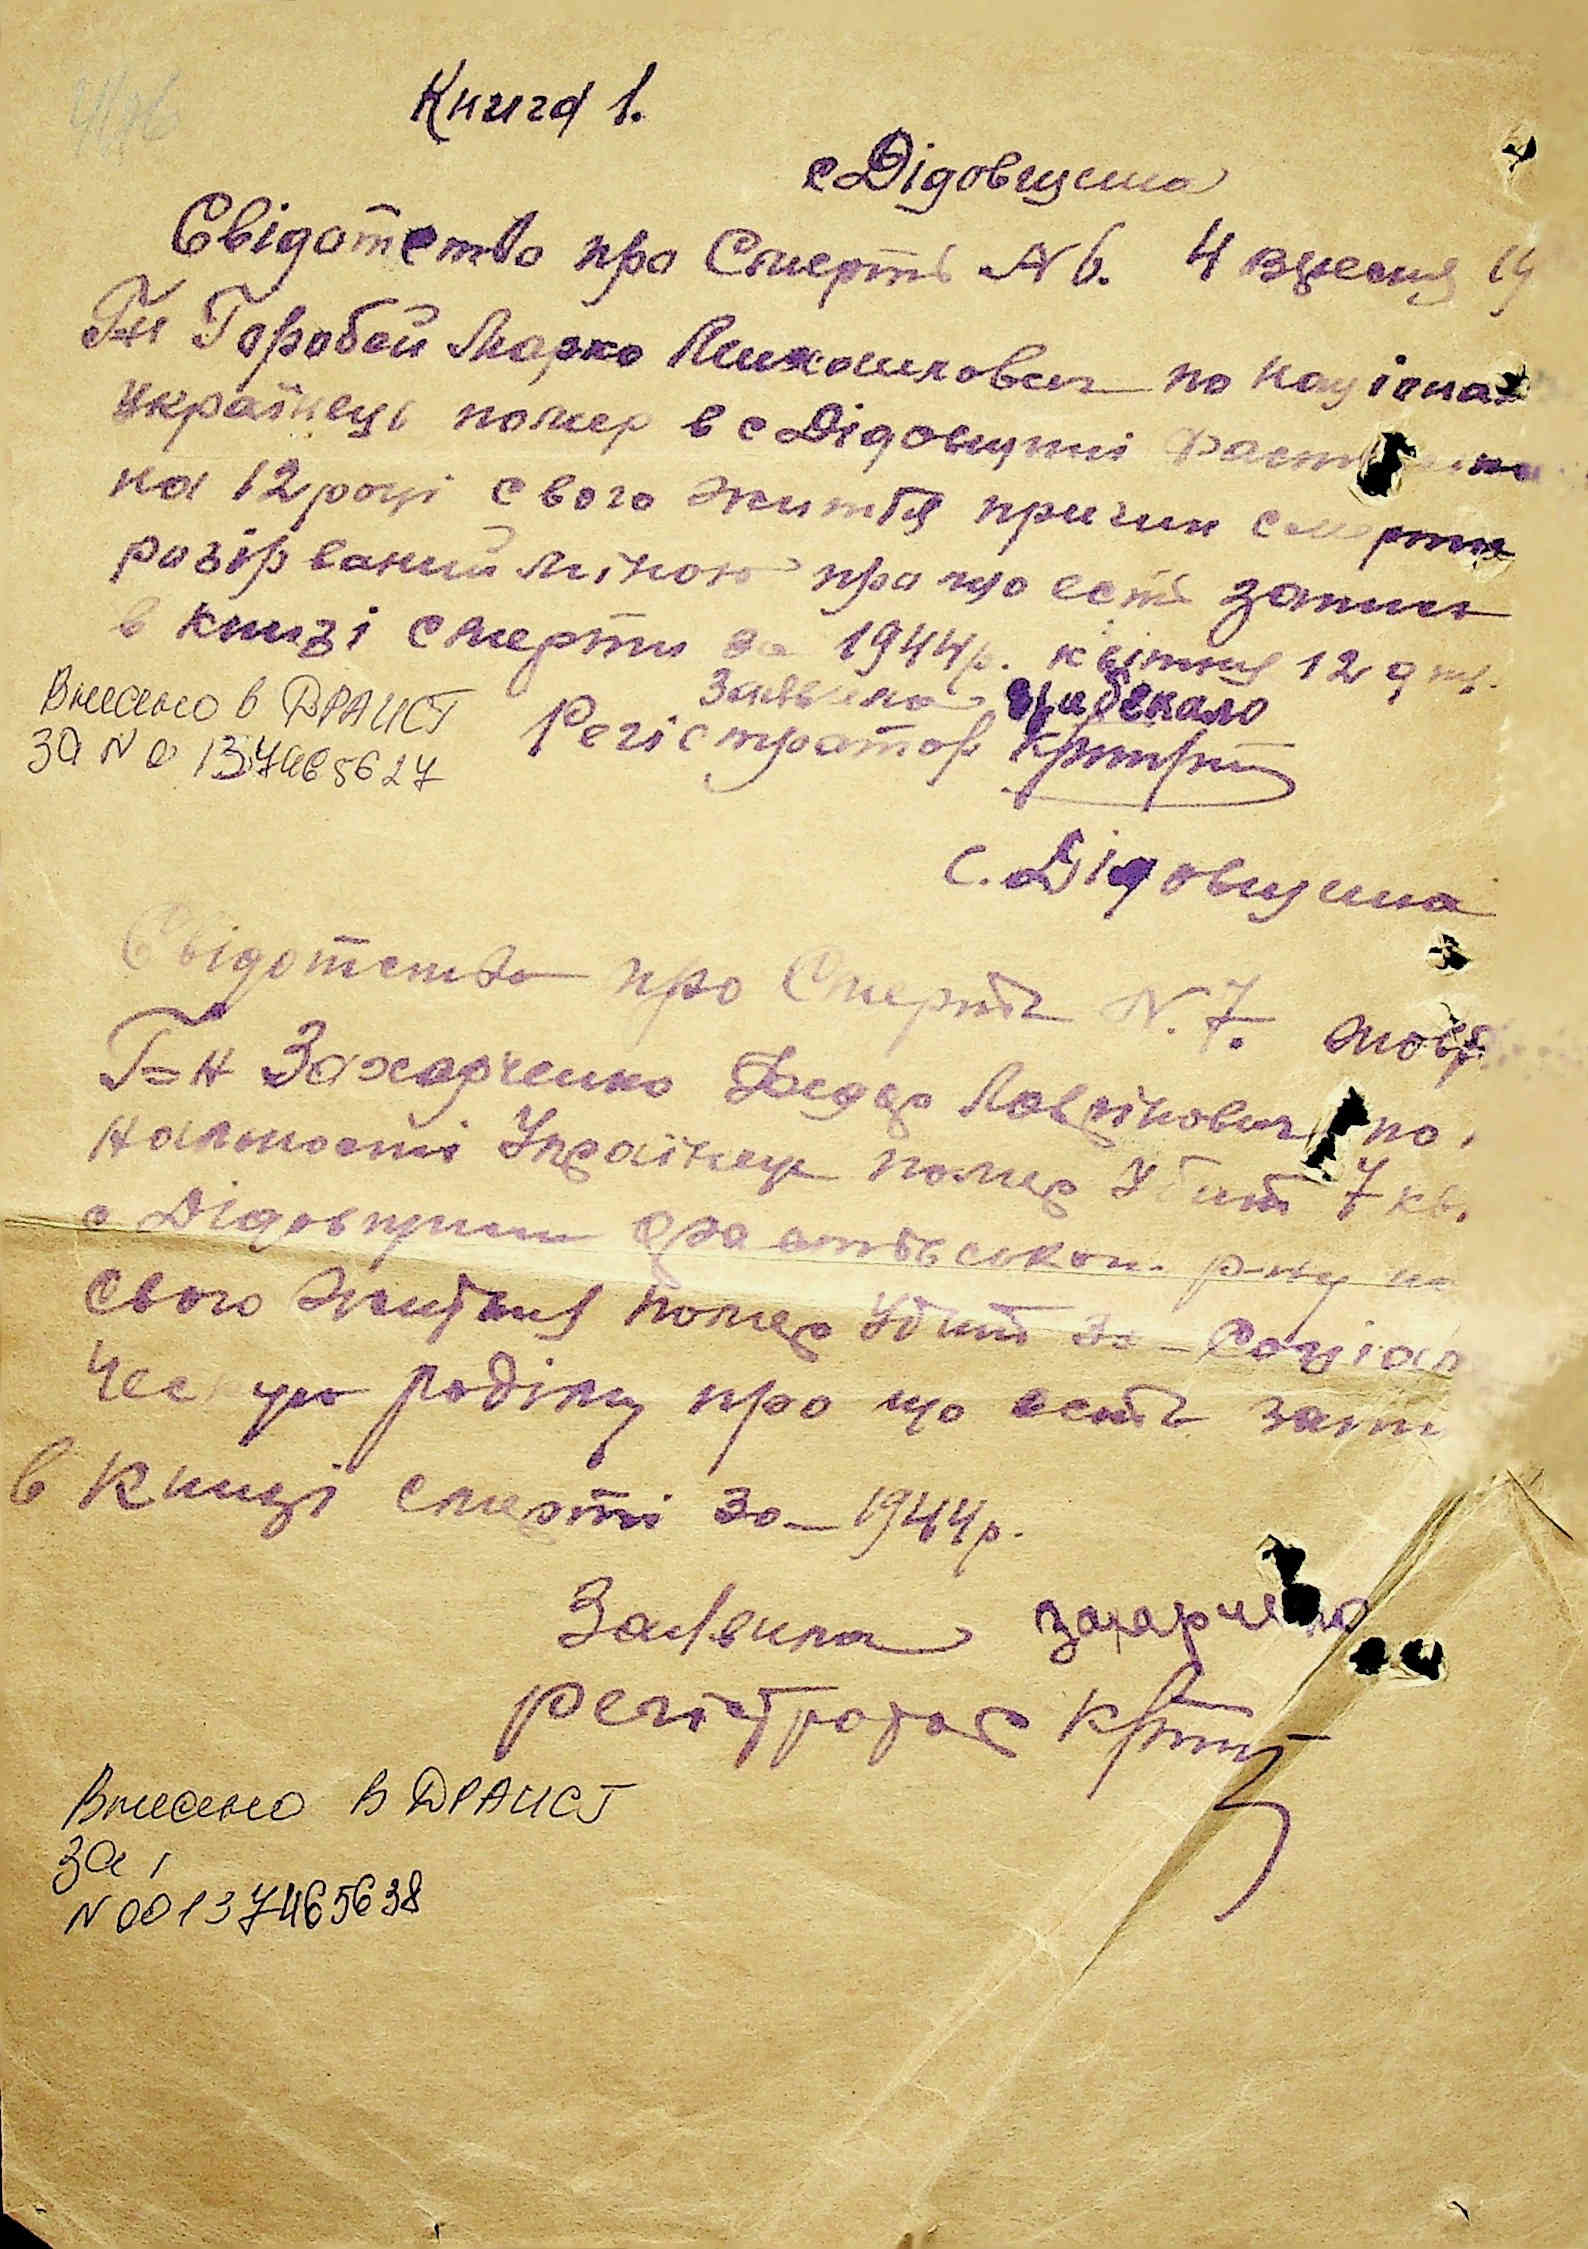 Книга 1.
с Дідовщина
Свідотство про Смерть N 6. 4 вересня 19
Г-н Горобей Марко Михайлович по націона
Українець помер в с Дідовщині
на 12 році свого життя причин смерти
розірваний міною про що есть запись
в книзі смерти за 1944р. квітня 12 дня.
Заявила
Регістратор
Внесено в ДРАЦСГ
за N 0 137465627
с. Дідовщина
Свідотство про Смерть N. 7.
Г-н Захарченко Федор Лаврінович по
нальності Українец помер Убит 7 кв.
с Дідовщини Фастівськои р-ну на
свого життя помер Убит за Соціал
ческую родіну про що есть запи
в книзі смерті за 1944р.
Заявила Захарченко
регістратор
Внесено в ДРАЦСГ
за
N 00137465638